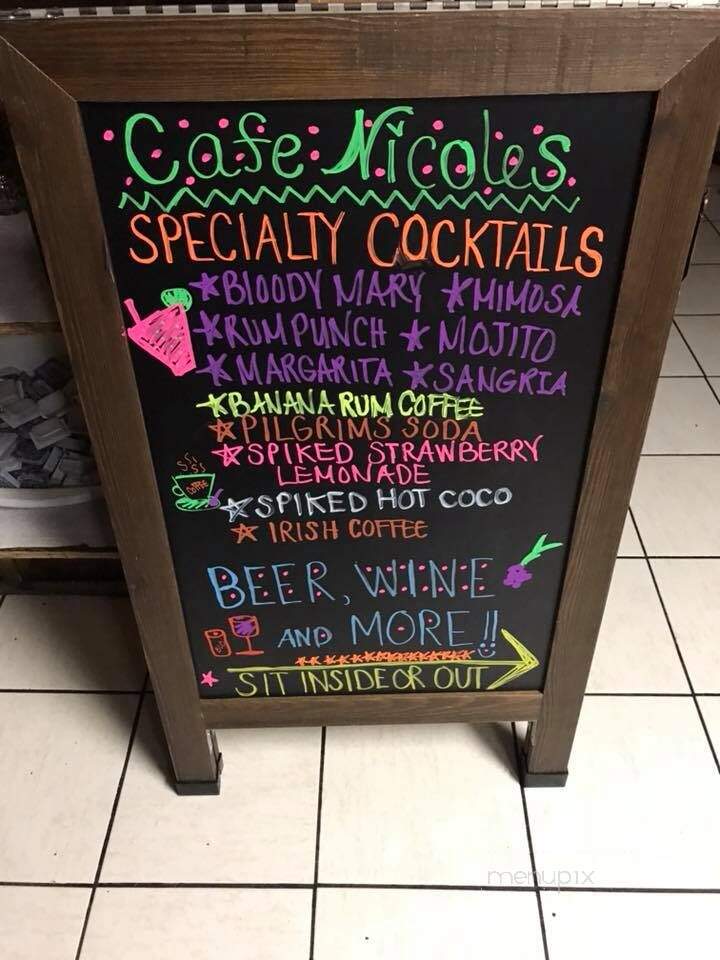 Cafe Nicoles
SPECIALTY COCKTAILS
*BLOODY MARY *MIMOSA
*RUM PUNCH * MOJITO
*MARGARITA *SANGRIA
*BANANA RUM COFFEE
*PILGRIMS SODA
*SPIKED STRAWBERRY
LEMONADE
COFFEE
*SPIKED HOT COCO
* IRISH COFFEE
BEER, WINE
AND MORE!!
* SIT INSIDE OR OUT
menupix